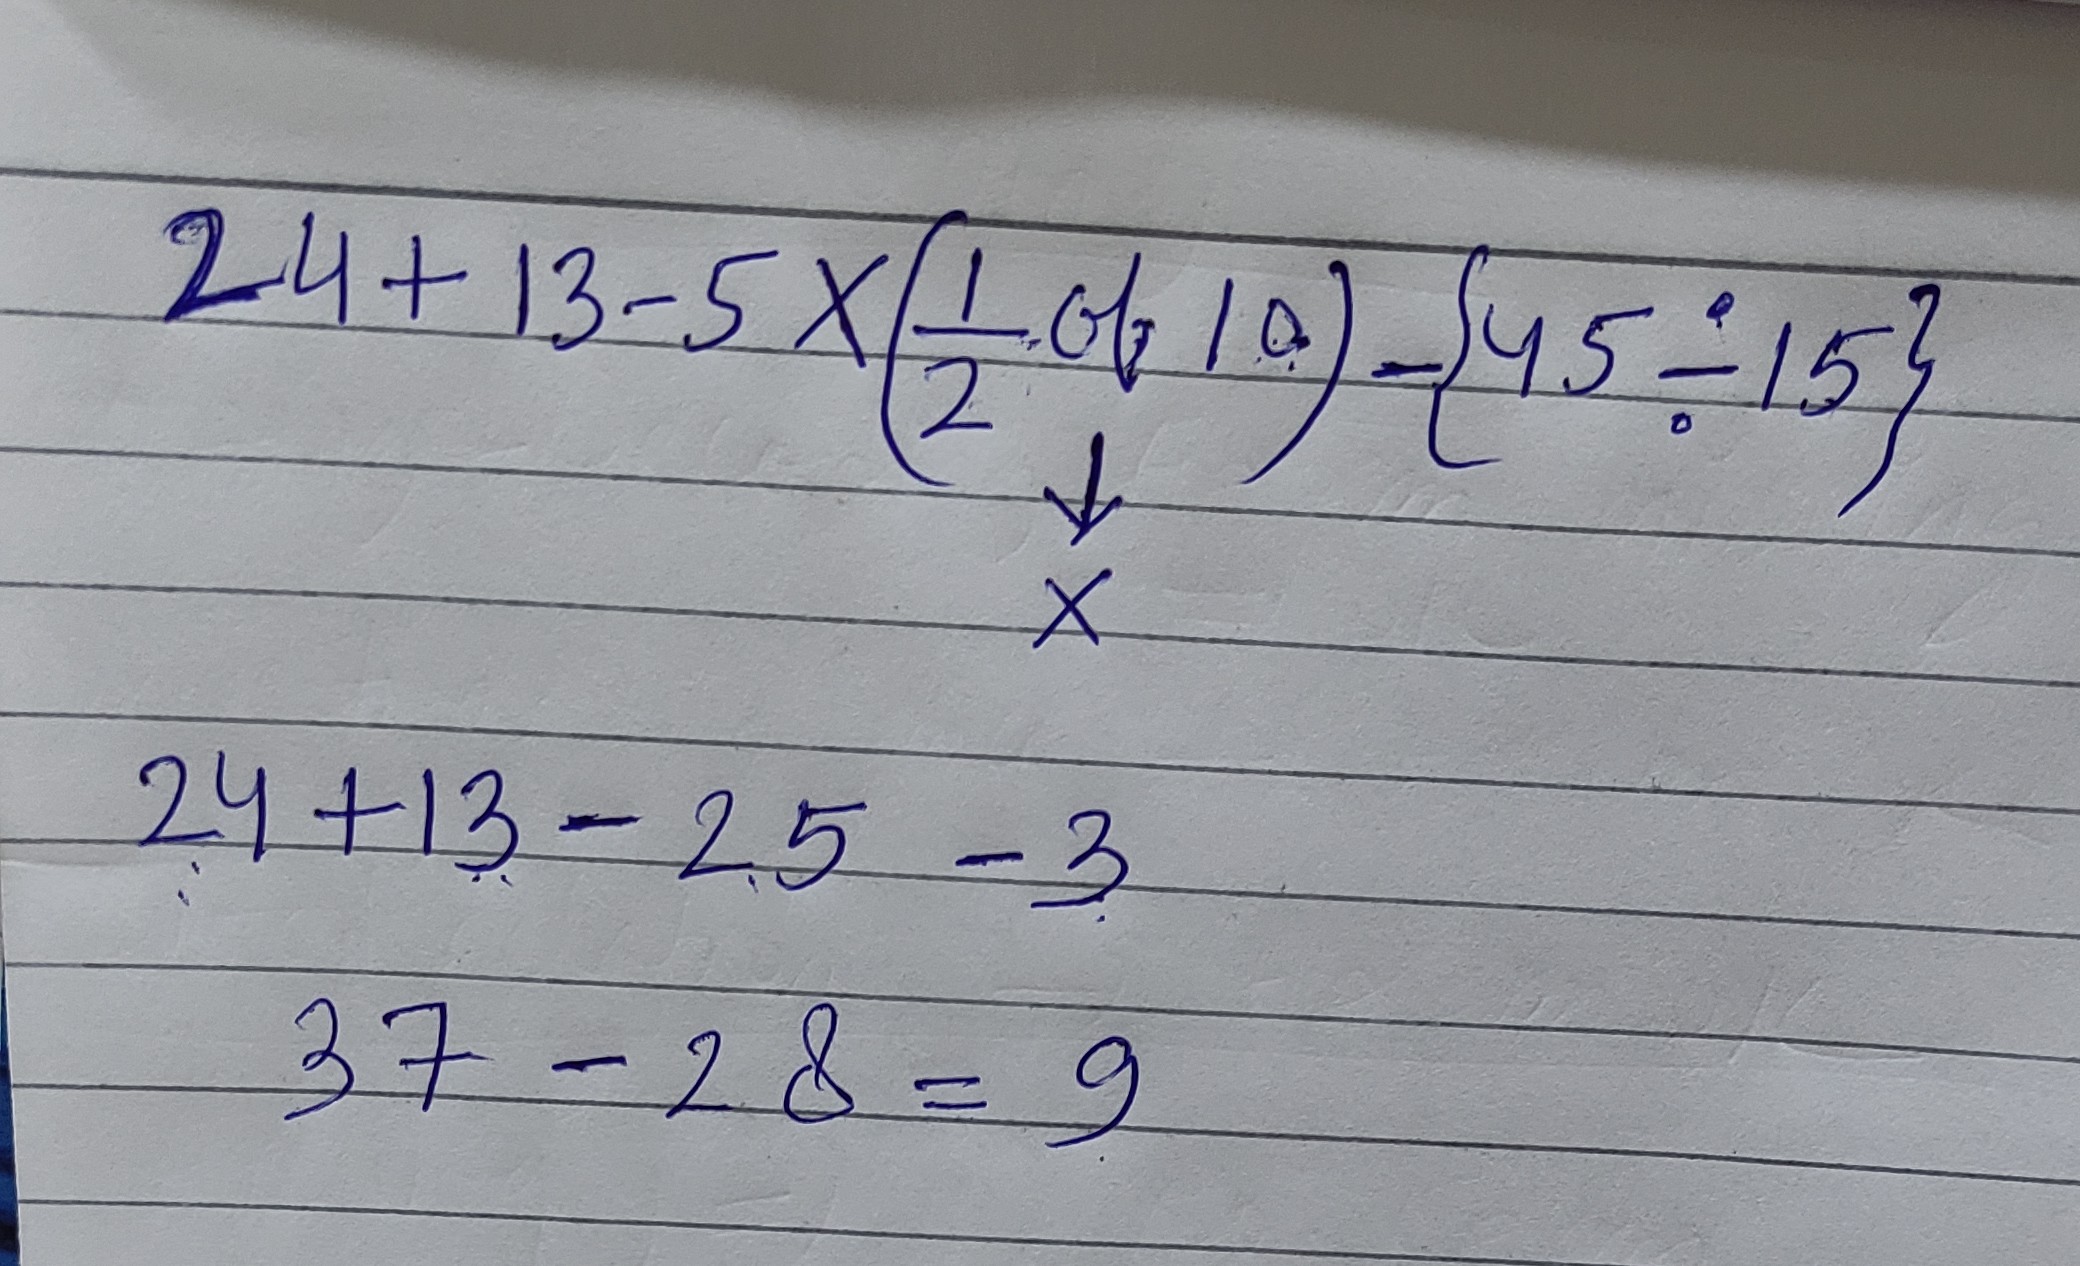 24 + 13 - 5 × (1/2 of 10) - {45 ÷ 15}
↓
×
24 + 13 - 25 - 3
37 - 28 = 9